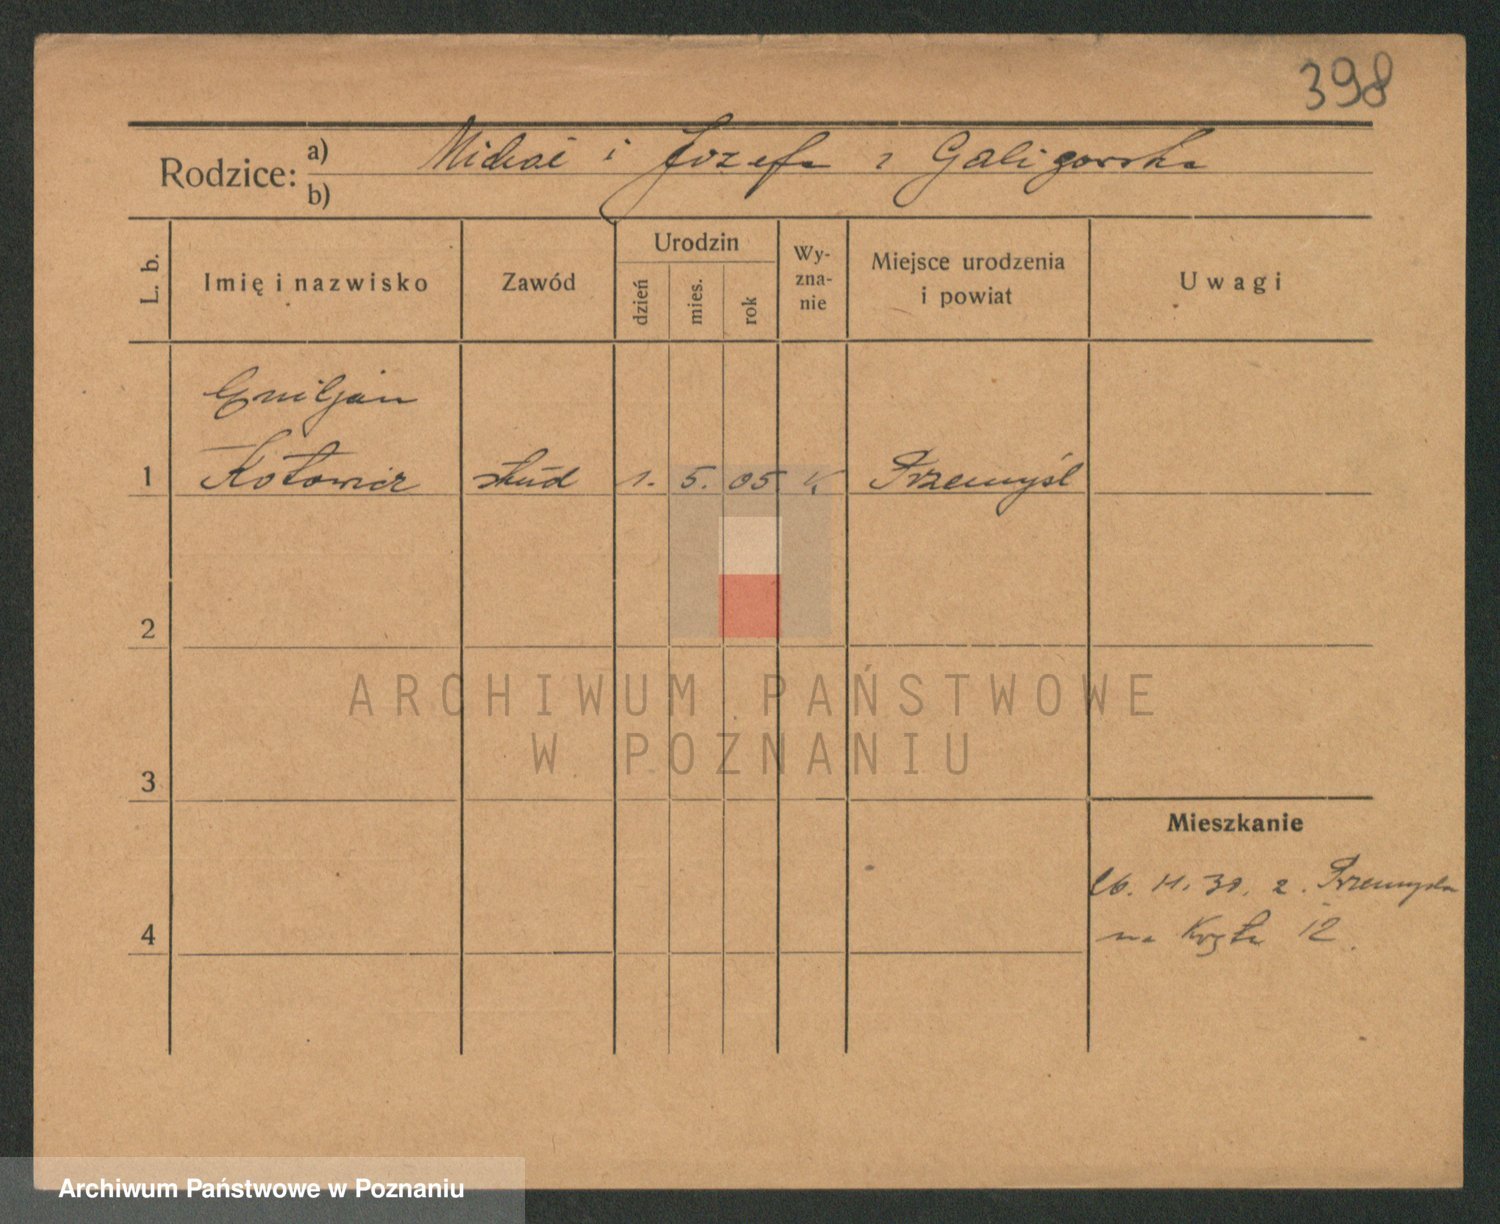 398
Rodzice: a) Michał i Józefa z Galigorska
b)
L. b. Imię i nazwisko Zawód Urodzin dzień mies. rok Wy-zna-nie Miejsce urodzenia i powiat Uwagi
Emiljan
1 Kotowicz stud 1. 5. 05 K Przemyśl
2
ARCHIWUM PAŃSTWOWE
W POZNANIU
3
Mieszkanie
26. 11. 30. z Przemyśla
4 na 12.
Archiwum Państwowe w Poznaniu